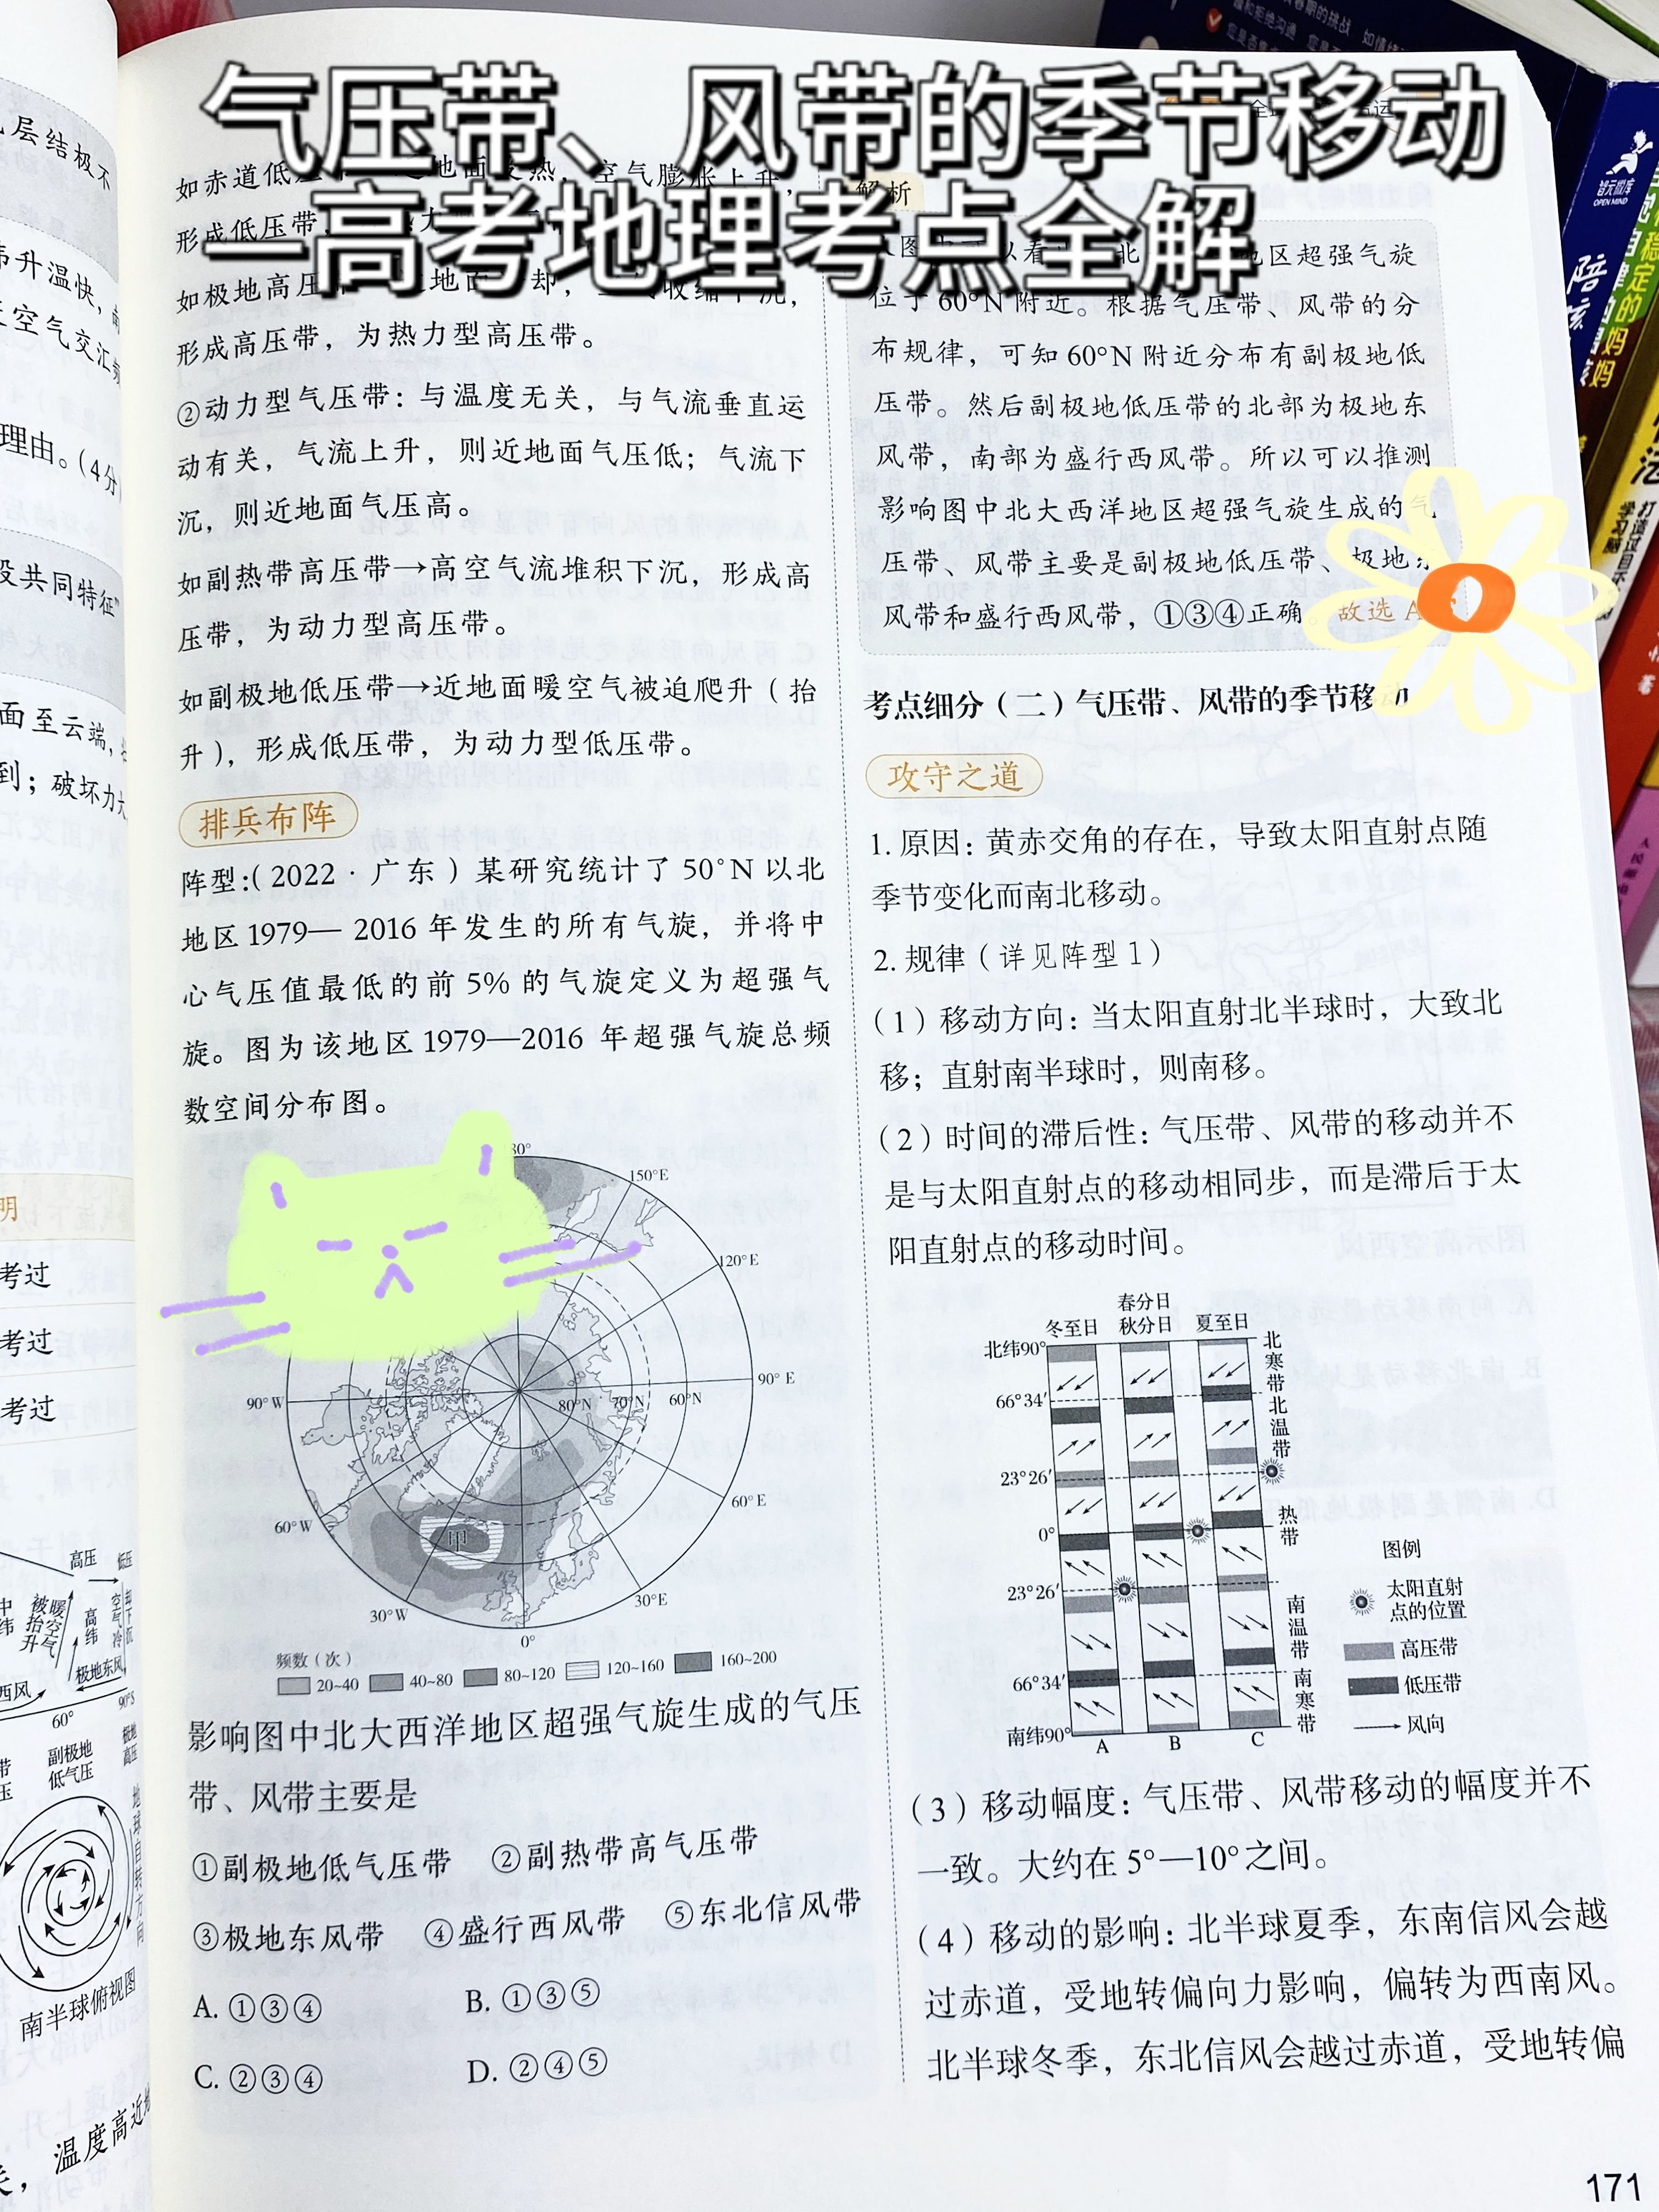 气压带、风带的季节移动
—高考地理考点全解
如赤道低
空气膨胀上升，
形成低压带，
如极地高压
形成高压带，为热力型高压带。
②动力型气压带：与温度无关，与气流垂直运
动有关，气流上升，则近地面气压低；气流下
沉，则近地面气压高。
如副热带高压带→高空气流堆积下沉，形成高
压带，为动力型高压带。
如副极地低压带→近地面暖空气被迫爬升（抬
升），形成低压带，为动力型低压带。
排兵布阵
阵型：（2022·广东）某研究统计了50°N以北
地区1979—2016年发生的所有气旋，并将中
心气压值最低的前5%的气旋定义为超强气
旋。图为该地区1979—2016年超强气旋总频
数空间分布图。
150°E
120°E
90°E
60°E
30°E
0°
30°W
60°W
90°W
80°N 70°N 60°N
甲
频数（次）
20~40 40~80 80~120 120~160 160~200
影响图中北大西洋地区超强气旋生成的气压
带、风带主要是
①副极地低气压带 ②副热带高气压带
③极地东风带 ④盛行西风带 ⑤东北信风带
A. ①③④ B. ①③⑤
C. ②③④ D. ②④⑤
解析
地区超强气旋
位于60°N附近。根据气压带、风带的分
布规律，可知60°N附近分布有副极地低
压带。然后副极地低压带的北部为极地东
风带，南部为盛行西风带。所以可以推测
影响图中北大西洋地区超强气旋生成的气
压带、风带主要是副极地低压带、极地东
风带和盛行西风带，①③④正确。故选A
考点细分（二）气压带、风带的季节移动
攻守之道
1. 原因：黄赤交角的存在，导致太阳直射点随
季节变化而南北移动。
2. 规律（详见阵型1）
（1）移动方向：当太阳直射北半球时，大致北
移；直射南半球时，则南移。
（2）时间的滞后性：气压带、风带的移动并不
是与太阳直射点的移动相同步，而是滞后于太
阳直射点的移动时间。
冬至日 春分日 秋分日 夏至日
北纬90°
66°34′
23°26′
0°
23°26′
66°34′
南纬90°
北寒带
北温带
热带
南温带
南寒带
A B C
图例
太阳直射
点的位置
高压带
低压带
风向
（3）移动幅度：气压带、风带移动的幅度并不
一致。大约在5°—10°之间。
（4）移动的影响：北半球夏季，东南信风会越
过赤道，受地转偏向力影响，偏转为西南风。
北半球冬季，东北信风会越过赤道，受地转偏
171
层结极不
升温快，
空气交汇
理由。（4分
共同特征”
面至云端，
到；破坏力
明
考过
考过
考过
高压
低压
暖空气
被抬升
高纬
极地东风
西风
60°
90°S
副极地
低气压
极地
高压
地球自转方向
南半球俯视图
温度高近
OPEN MIND